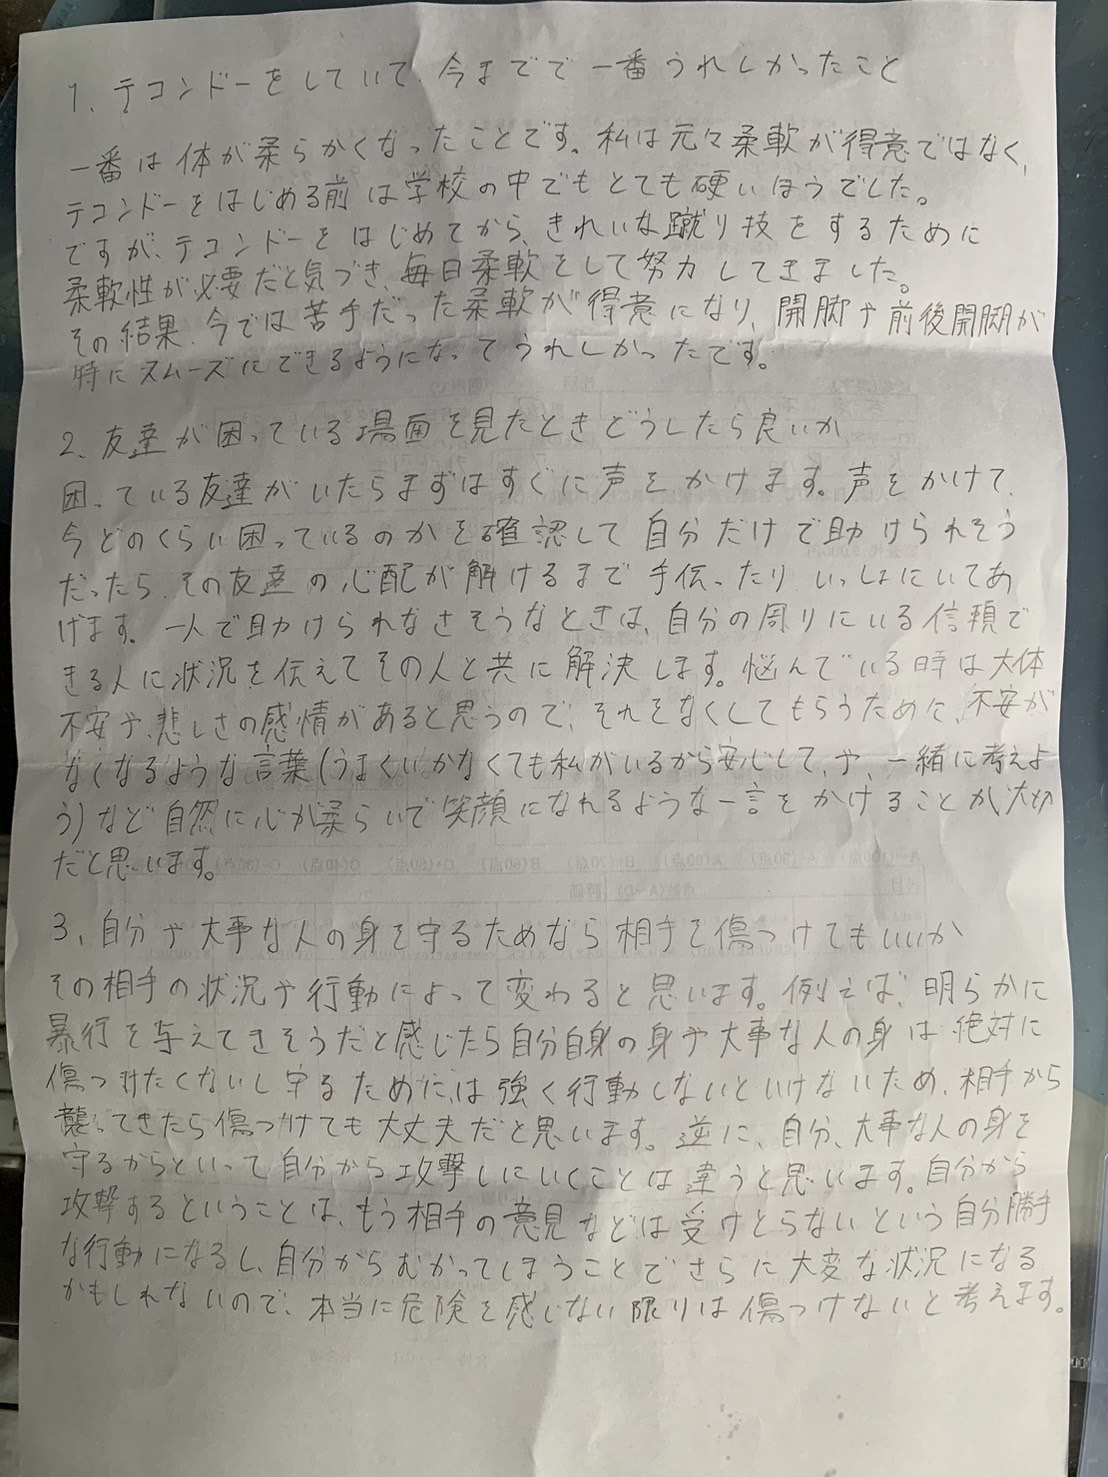 1、テコンドーをしていて、今までで一番うれしかったこと
一番は体が柔らかくなったことです。私は元々柔軟が得意ではなく、
テコンドーをはじめる前は学校の中でもとても硬いほうでした。
ですが、テコンドーをはじめてから、きれいな蹴り技をするために
柔軟性が必要だと気づき、毎日柔軟をして努力してきました。
その結果、今では苦手だった柔軟が得意になり、開脚や前後開脚が
特にスムーズにできるようになってうれしかったです。
2、友達が困っている場面を見たときどうしたら良いか
困っている友達がいたらまずはすぐに声をかけます。声をかけて、
今どのくらい困っているのかを確認して自分だけで助けられそう
だったら、その友達の心配が解けるまで手伝ったりいっしょにいてあ
げます。一人で助けられなさそうなときは、自分の周りにいる信頼で
きる人に状況を伝えてその人と共に解決します。悩んでいる時は大体
不安や、悲しさの感情があると思うので、それをなくしてもらうために、不安が
なくなるような言葉(うまくいかなくても私がいるから安心して、や、一緒に考えよ
う)など自然に心が柔らいで笑顔になれるような一言をかけることが大切
だと思います。
3、自分や大事な人の身を守るためなら相手を傷つけてもいいか
その相手の状況や行動によって変わると思います。例えば、明らかに
暴行を与えてきそうだと感じたら自分自身の身や大事な人の身は絶対に
傷つけたくないし守るためには強く行動しないといけないため、相手から
襲ってきたら傷つけても大丈夫だと思います。逆に、自分、大事な人の身を
守るからといって自分から攻撃しにいくことは違うと思います。自分から
攻撃するということは、もう相手の意見などは受けとらないという自分勝手
な行動になるし、自分からむかってしまうことでさらに大変な状況になる
かもしれないので、本当に危険を感じない限りは傷つけないと考えます。